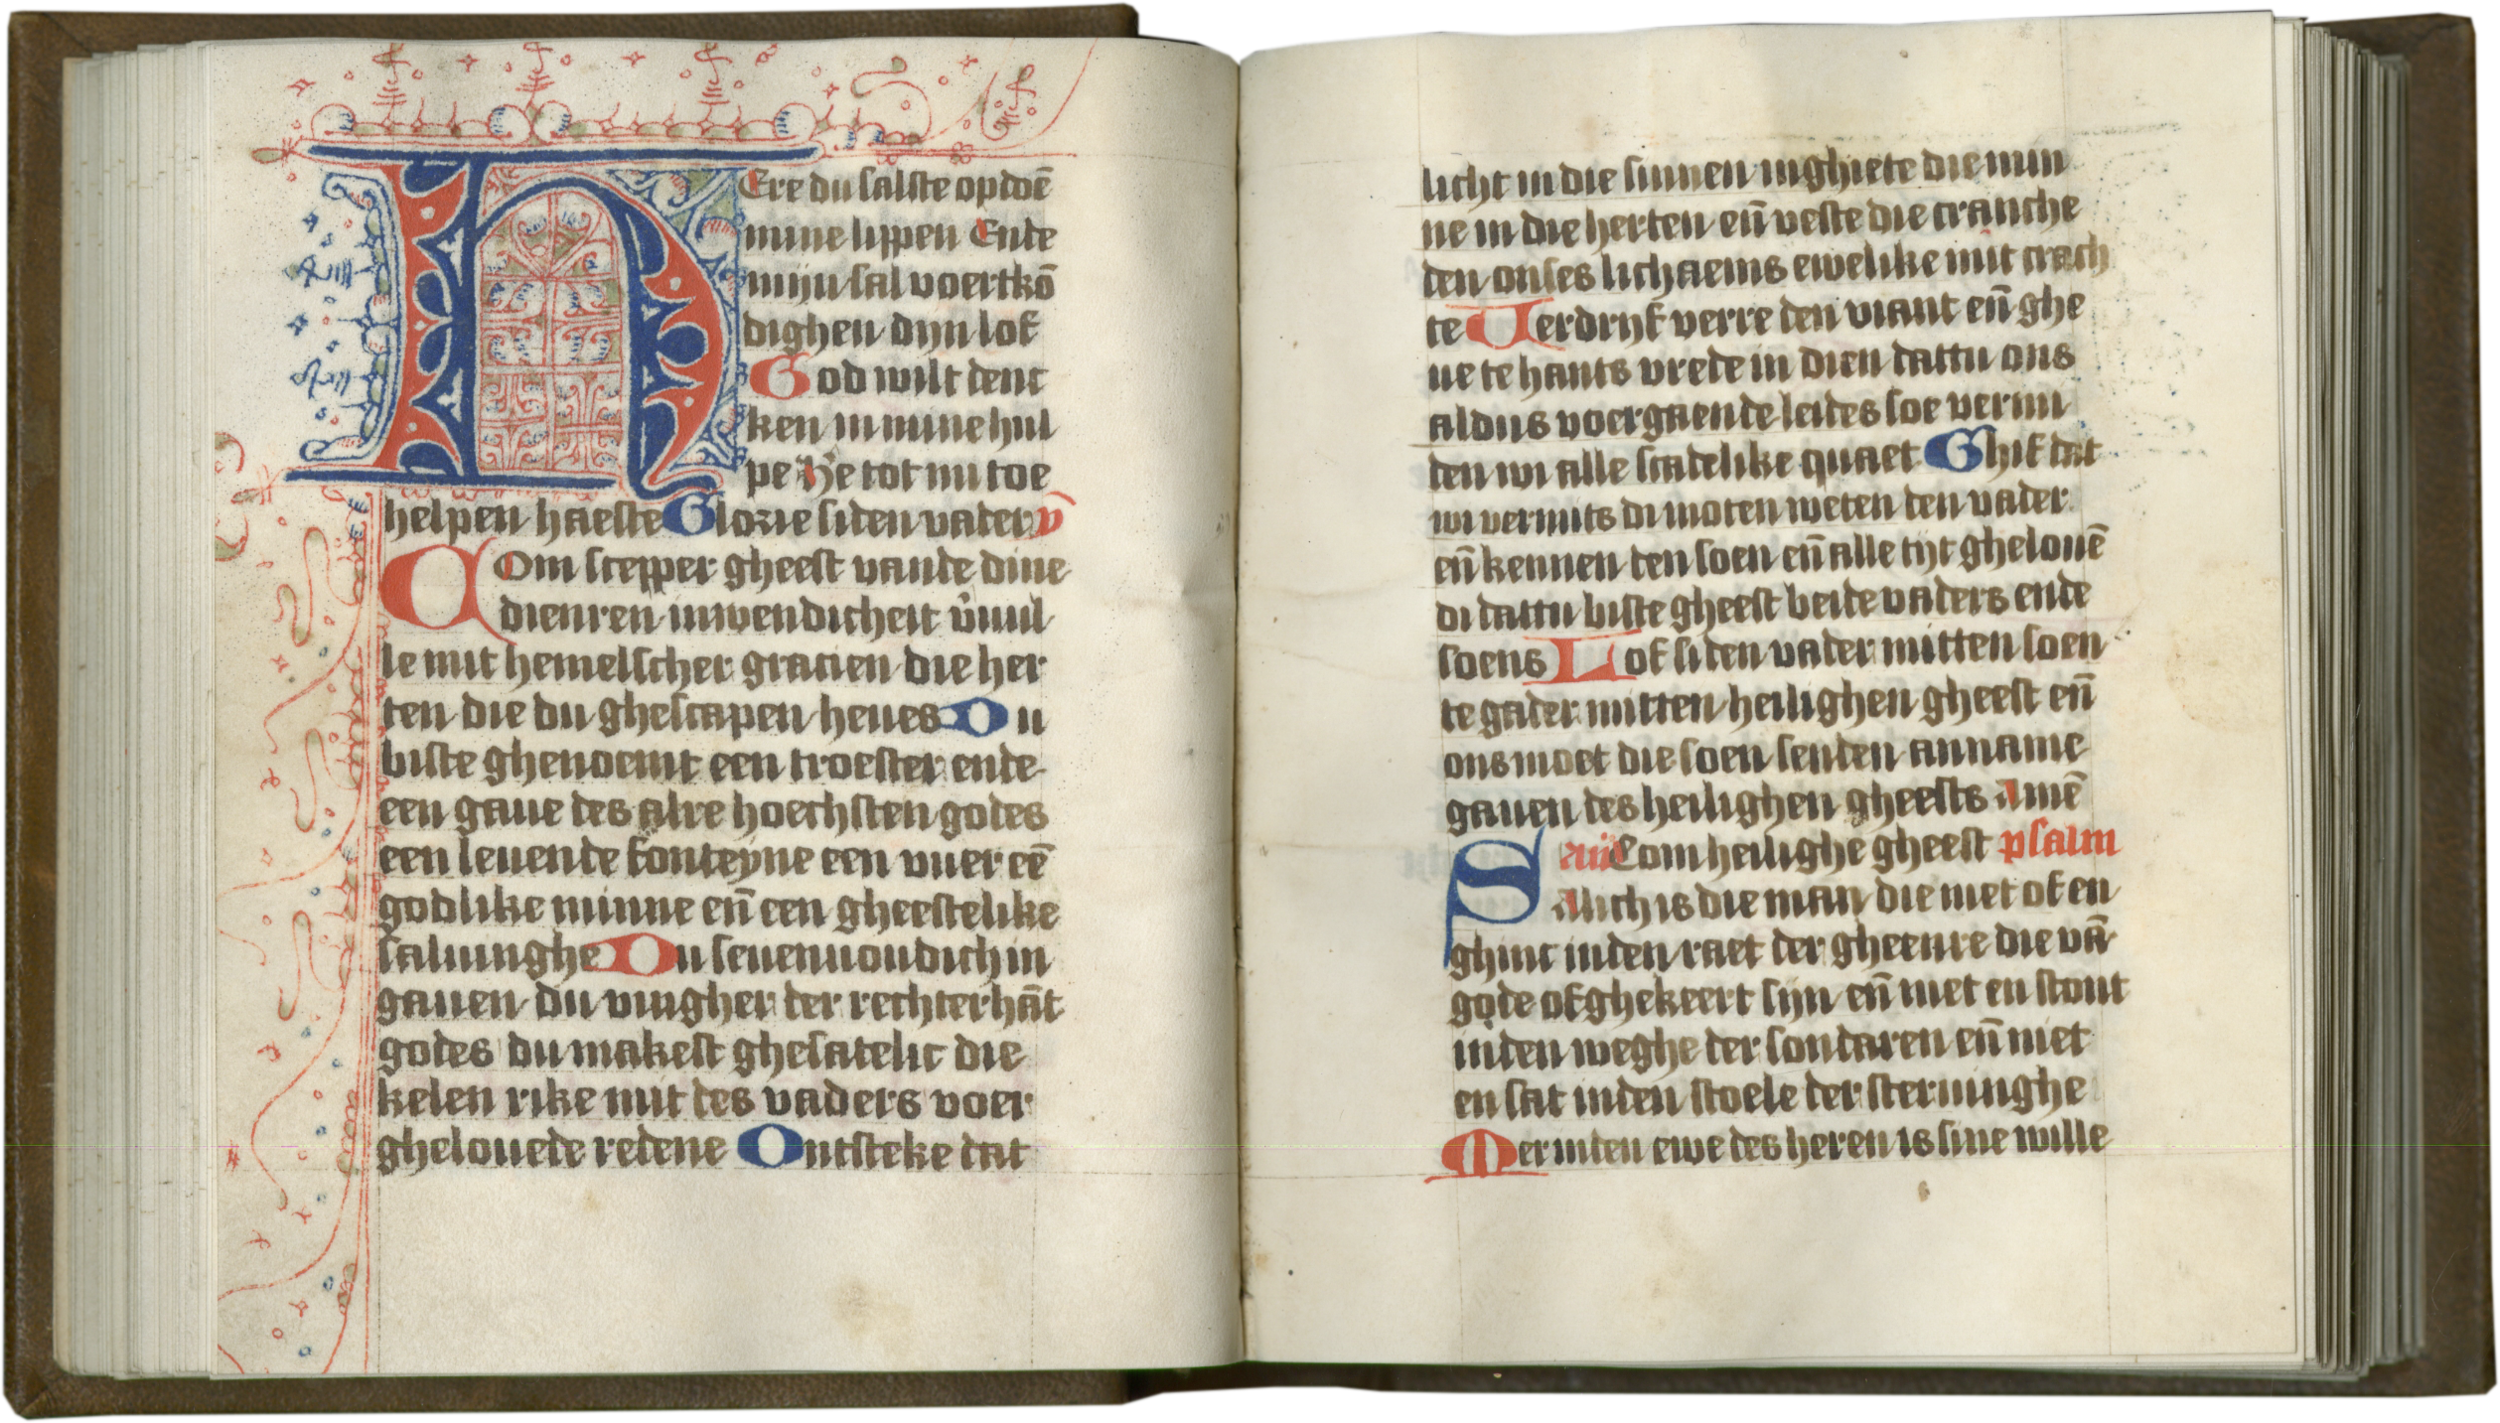 HEre du salste op doē
mine lippen Ende
mijn sal voertkō
dighen dijn lof
God wilt denc
ken in mine hul
pe He tot mi toe
helpen haeste Glorie si den vader ℣
Com scepper gheest vande dine
dienren inwendicheit v̄uul
le mit hemelscher gracien die her
ten die du ghescapen heues Du
biste ghenoemt een troester ende
een gaue des alre hoechsten godes
een leuende fonteyne een vuer eē
godlike minne eñ een gheestelike
saluinghe Du seuenuoudich in
gauen du vingher der rechterhāt
godes du makest ghesatelic die
kelen rike mit des vaders voer
ghelouede redene Ontsteke dat
licht in die sinnen inghiete die min
ne in die herten eñ veste die cranche
den onses lichaems ewelike mit crach
te Verdrijf verre den viant eñ ghe
ue te hants vrede in dien dattu ons
aldus voergaende leides soe vermi
den wi alle scadelike quaet Ghif dat
wi vermits di moten weten den vader
eñ kennen den soen eñ alle tijt ghelouē
di dattu biste gheest beide vaders ende
soens Lof si den vader mitten soen
te gader mitten heilighen gheest eñ
ons moet die soen senden anname
gauen des heilighen gheests Amē
an̄ Com heilighe gheest psalm
Salich is die man die niet of en
ghinc inden raet der gheenre die vā
gode of ghekeert sijn eñ niet en stont
inden weghe der sondaren eñ niet
en sat inden stoele der steruinghe
Mer inden ewe des heren is sine wille